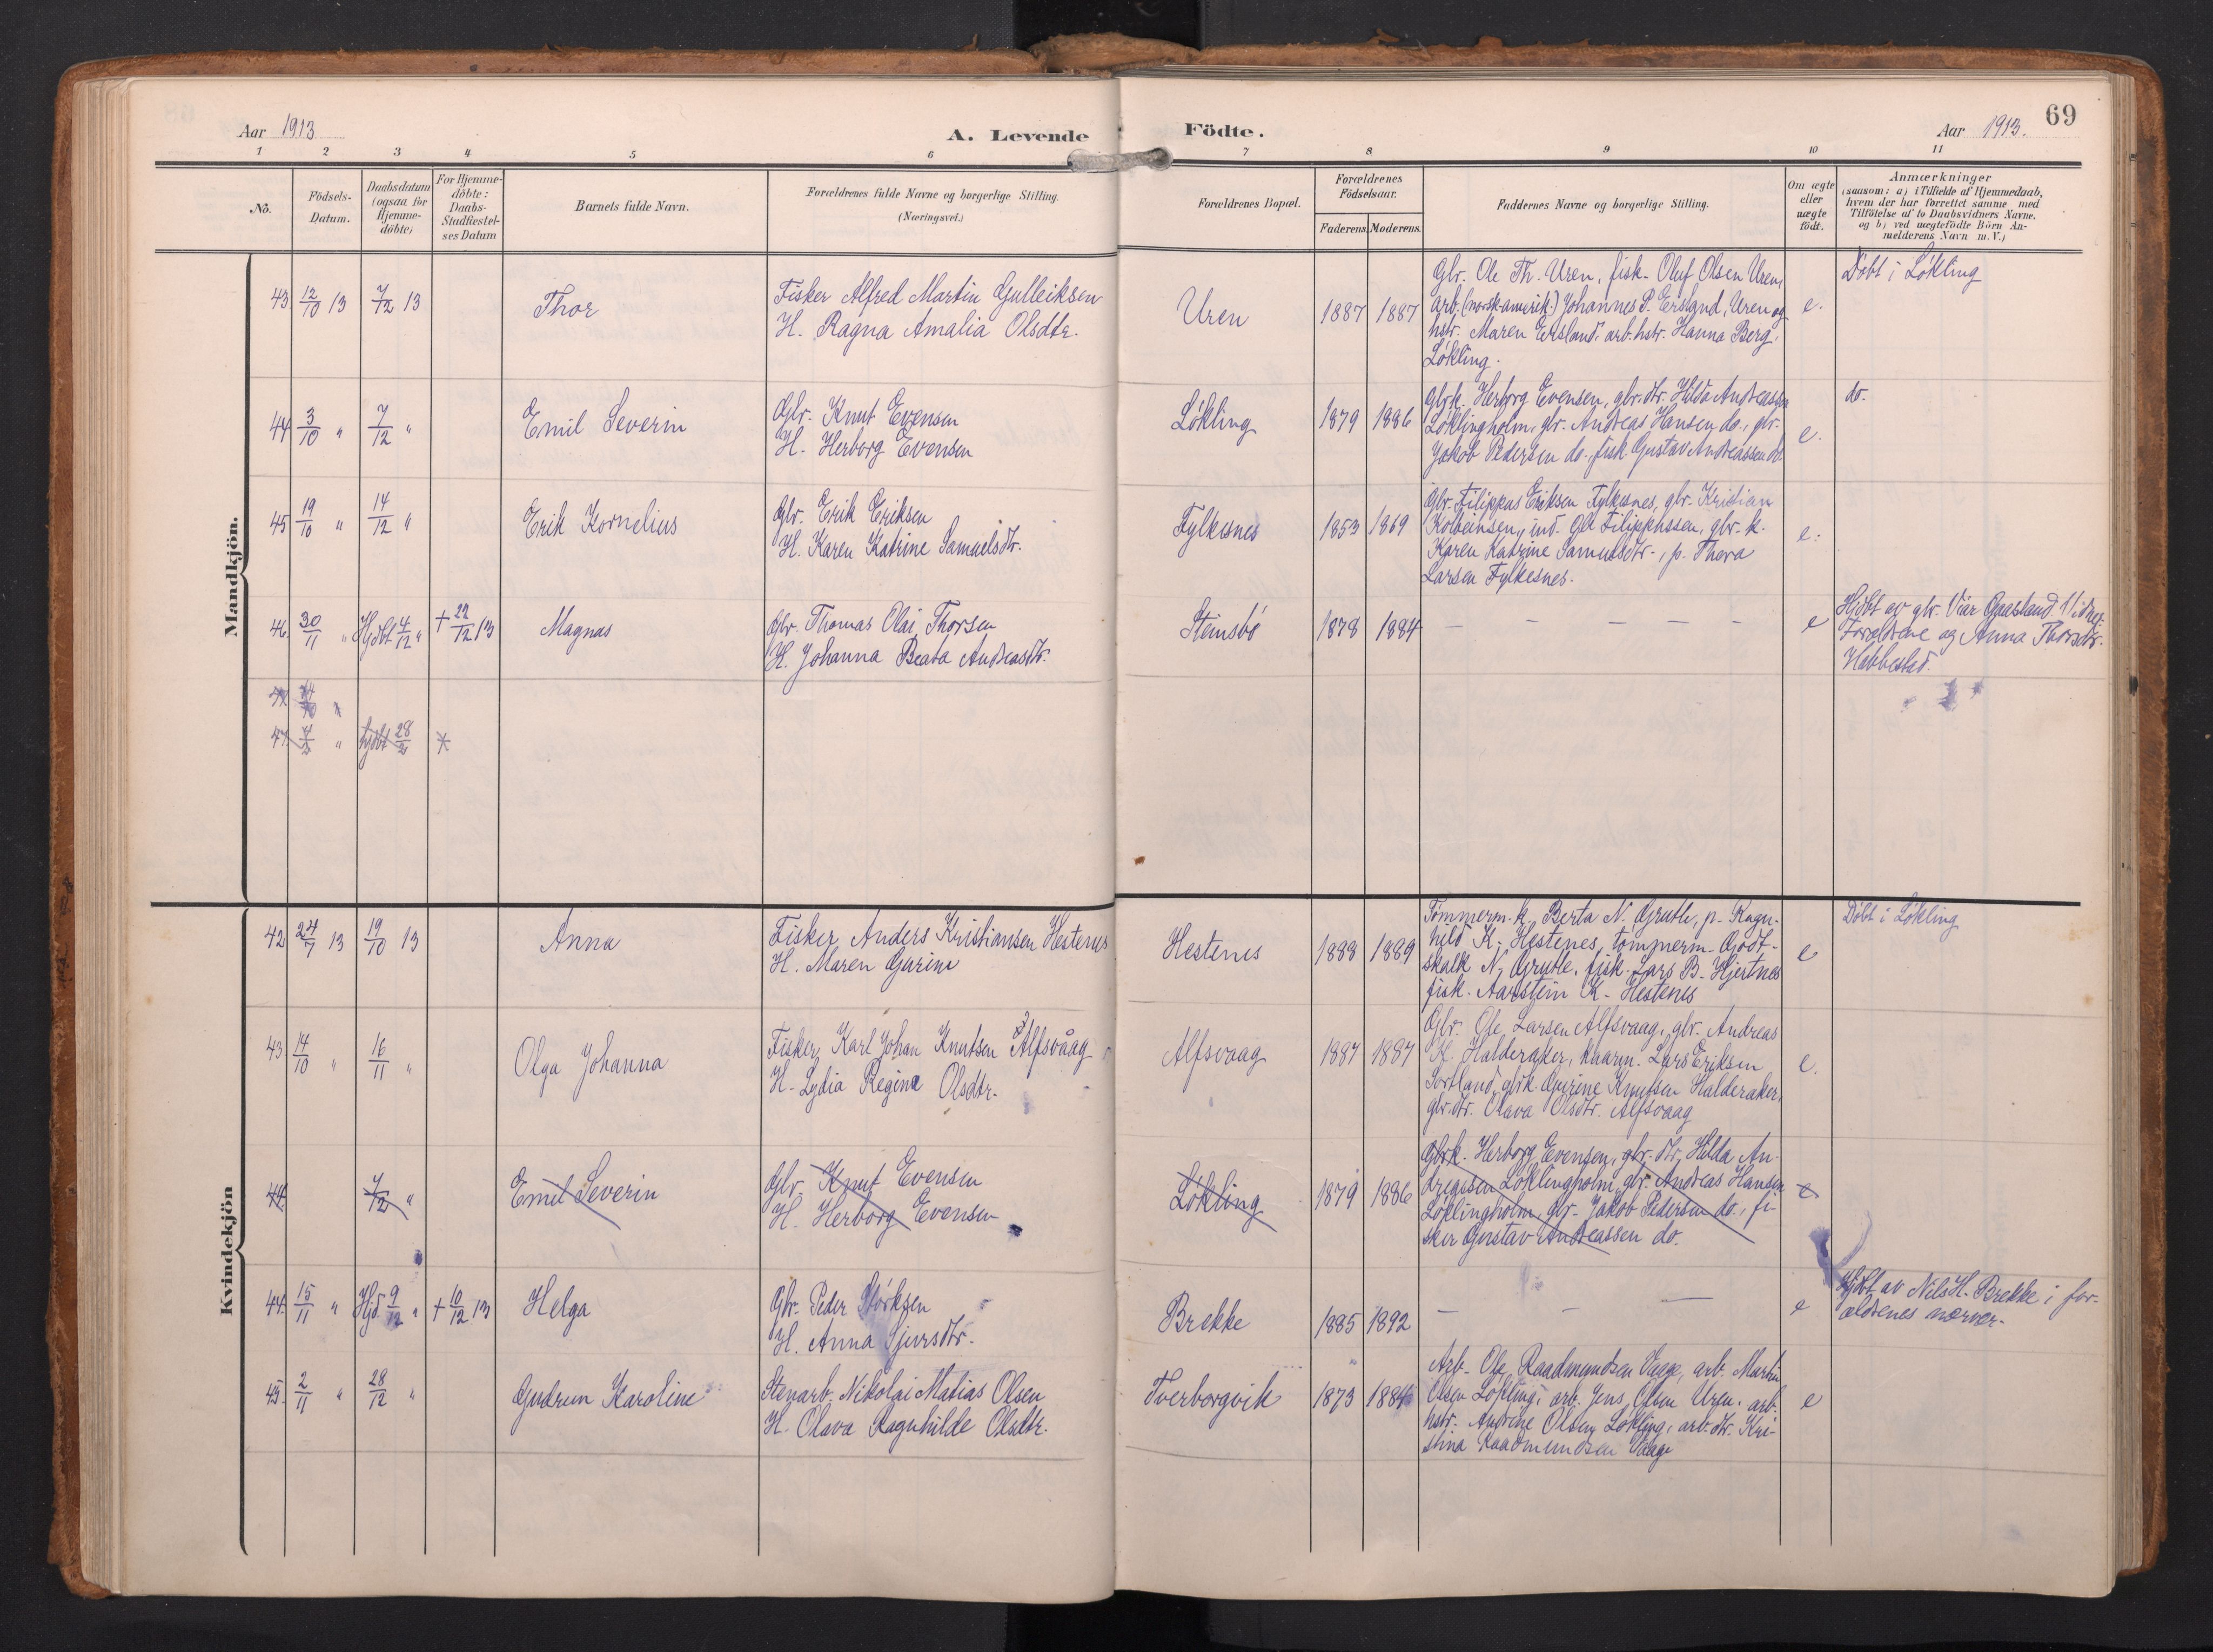 69
Aar 1913
A. Levende Födte.
Aar 1913.
1 2 3 4 5 6 7 8 9 10 11
No.
Födsels-
Datum.
Daabsdatum
(ogsaa for
Hjemme-
döbte)
For Hjemme-
döbte:
Daabs-
Stadfæstel-
ses Datum
Barnets fulde Navn.
Forældrenes fulde Navne og borgerlige Stilling.
(Næringsvei.)
Forældrenes Bopæl.
Forældrenes
Födselsaar.
Faderens. Moderens.
Faddernes Navne og borgerlige Stilling.
Om ægte
eller
uægte
födt.
Anmærkninger
(saasom: a) i Tilfælde af Hjemmedaab,
hvem der har forrettet samme med
Tilföielse af to Daabsvidners Navne.
og b) ved uægtefödte Börn An-
melderens Navn m. V.)
Mandkjön.
43 12/10 13 7/12 13
Thor
Fisker Alfred Martin Gulleiksen
H. Ragna Amalia Olsdtr.
Uren
1887 1887
Gbr. Ole Th. Uren, fisk. Oluf Olsen Uren,
arb. (norsk-amerik.) Johannes P. Ersland, Uren og
hstr. Maren Ersland, arb. hstr. Hanna Berg,
Løkling.
e.
Døbt i Løkling
44 3/10 " 7/12 "
Emil Severin
Gbr. Knut Evensen
H. Herborg Evensen
Løkling
1879 1886
Gbrk. Herborg Evensen, gbr. dtr. Hilda Andreassen
Løklingholm, gbr. Andreas Hansen do., gbr.
Jakob Pedersen do., fisk. Gustav Andreassen do.
e.
do.
45 19/10 " 14/12 "
Erik Kornelius
Gbr. Erik Eriksen
H. Karen Katrine Samuelsdtr.
Fylkesnes
1853 1869
Gbr. Filippus Eriksen Fylkesnes, gbr. Kristian
Kolbeinsen, ind. Ole Filippussen, gbr. k.
Karen Katrine Samuelsdtr., p. Thora
Larsen Fylkesnes.
e.
46. 30/11 " Hjdbt 4/12 " + 22/12 13
Magnus
Gbr. Thomas Olai Thorsen
H. Johanna Beata Andreasdtr.
Steinsbø
1878 1884
— — — — — —
e
Hjdbt av gbr. Viar Gaasland
Forældrene og Anna Thorsdtr.
Habbestad.
47. 4/2 " hjdbt 28/2
Kvindekjön
42 24/7 13 19/10 13
Anna
Fisker Anders Kristiansen Hestenes
H. Maren Gurine
Hestenes
1888 1889
Tømmerm. k. Berta N. Grutle, p. Ragn-
hild K. Hestenes, tømmerm. Godt-
skalk N. Grutle, fisk. Lars B. Hjertnes
fisk. Aarstein K. Hestenes
e
Døbt i Løkling
43 14/10 " 16/11 "
Olga Johanna
Fisker Karl Johan Knutsen Alfsvåag
H. Lydia Regine Olsdtr.
Alfsvaag
1887 1887
Gbr. Ole Larsen Alfsvaag, gbr. Andreas
K. Halderaker, Lars Eriksen
Sortland, gbrk. Gurine Knutsen Halderaker,
gbr. dtr. Olava Olsdtr. Alfsvaag
e.
44. 7/12 "
Emil Severin
Gbr. Knut Evensen
H. Herborg Evensen
Løkling
1879 1886
Gbrk. Herborg Evensen, gbr. dtr. Hilda An-
dreassen Løklingholm, gbr. Andreas Hansen
Løklingholm, gbr. Jakob Pedersen do., fi-
sker Gustav Andreassen do.
e
44. 15/11 " Hjd. 9/12 " + 10/12 13
Helga
Gbr. Peder Størksen
H. Anna Sjursdtr.
Brekke
1885 1892
— — —
e
Hjdbt av Nils H. Brekke i for-
ældrenes nærvær.
45. 2/11 " 28/12 "
Gudrun Karoline
Stenarb. Nikolai Matias Olsen
H. Olava Ragnhilde Olsdtr.
Tverborgvik
1873 1884
Arb. Ole Raadmundsen Vaage, arb. Martin
Olsen Løkling, arb. Jens Olsen Uren, arb.
hstr. Andrine Olsen Løkling, arb. dtr. Kri-
stina Raadmundsen Vaage
e